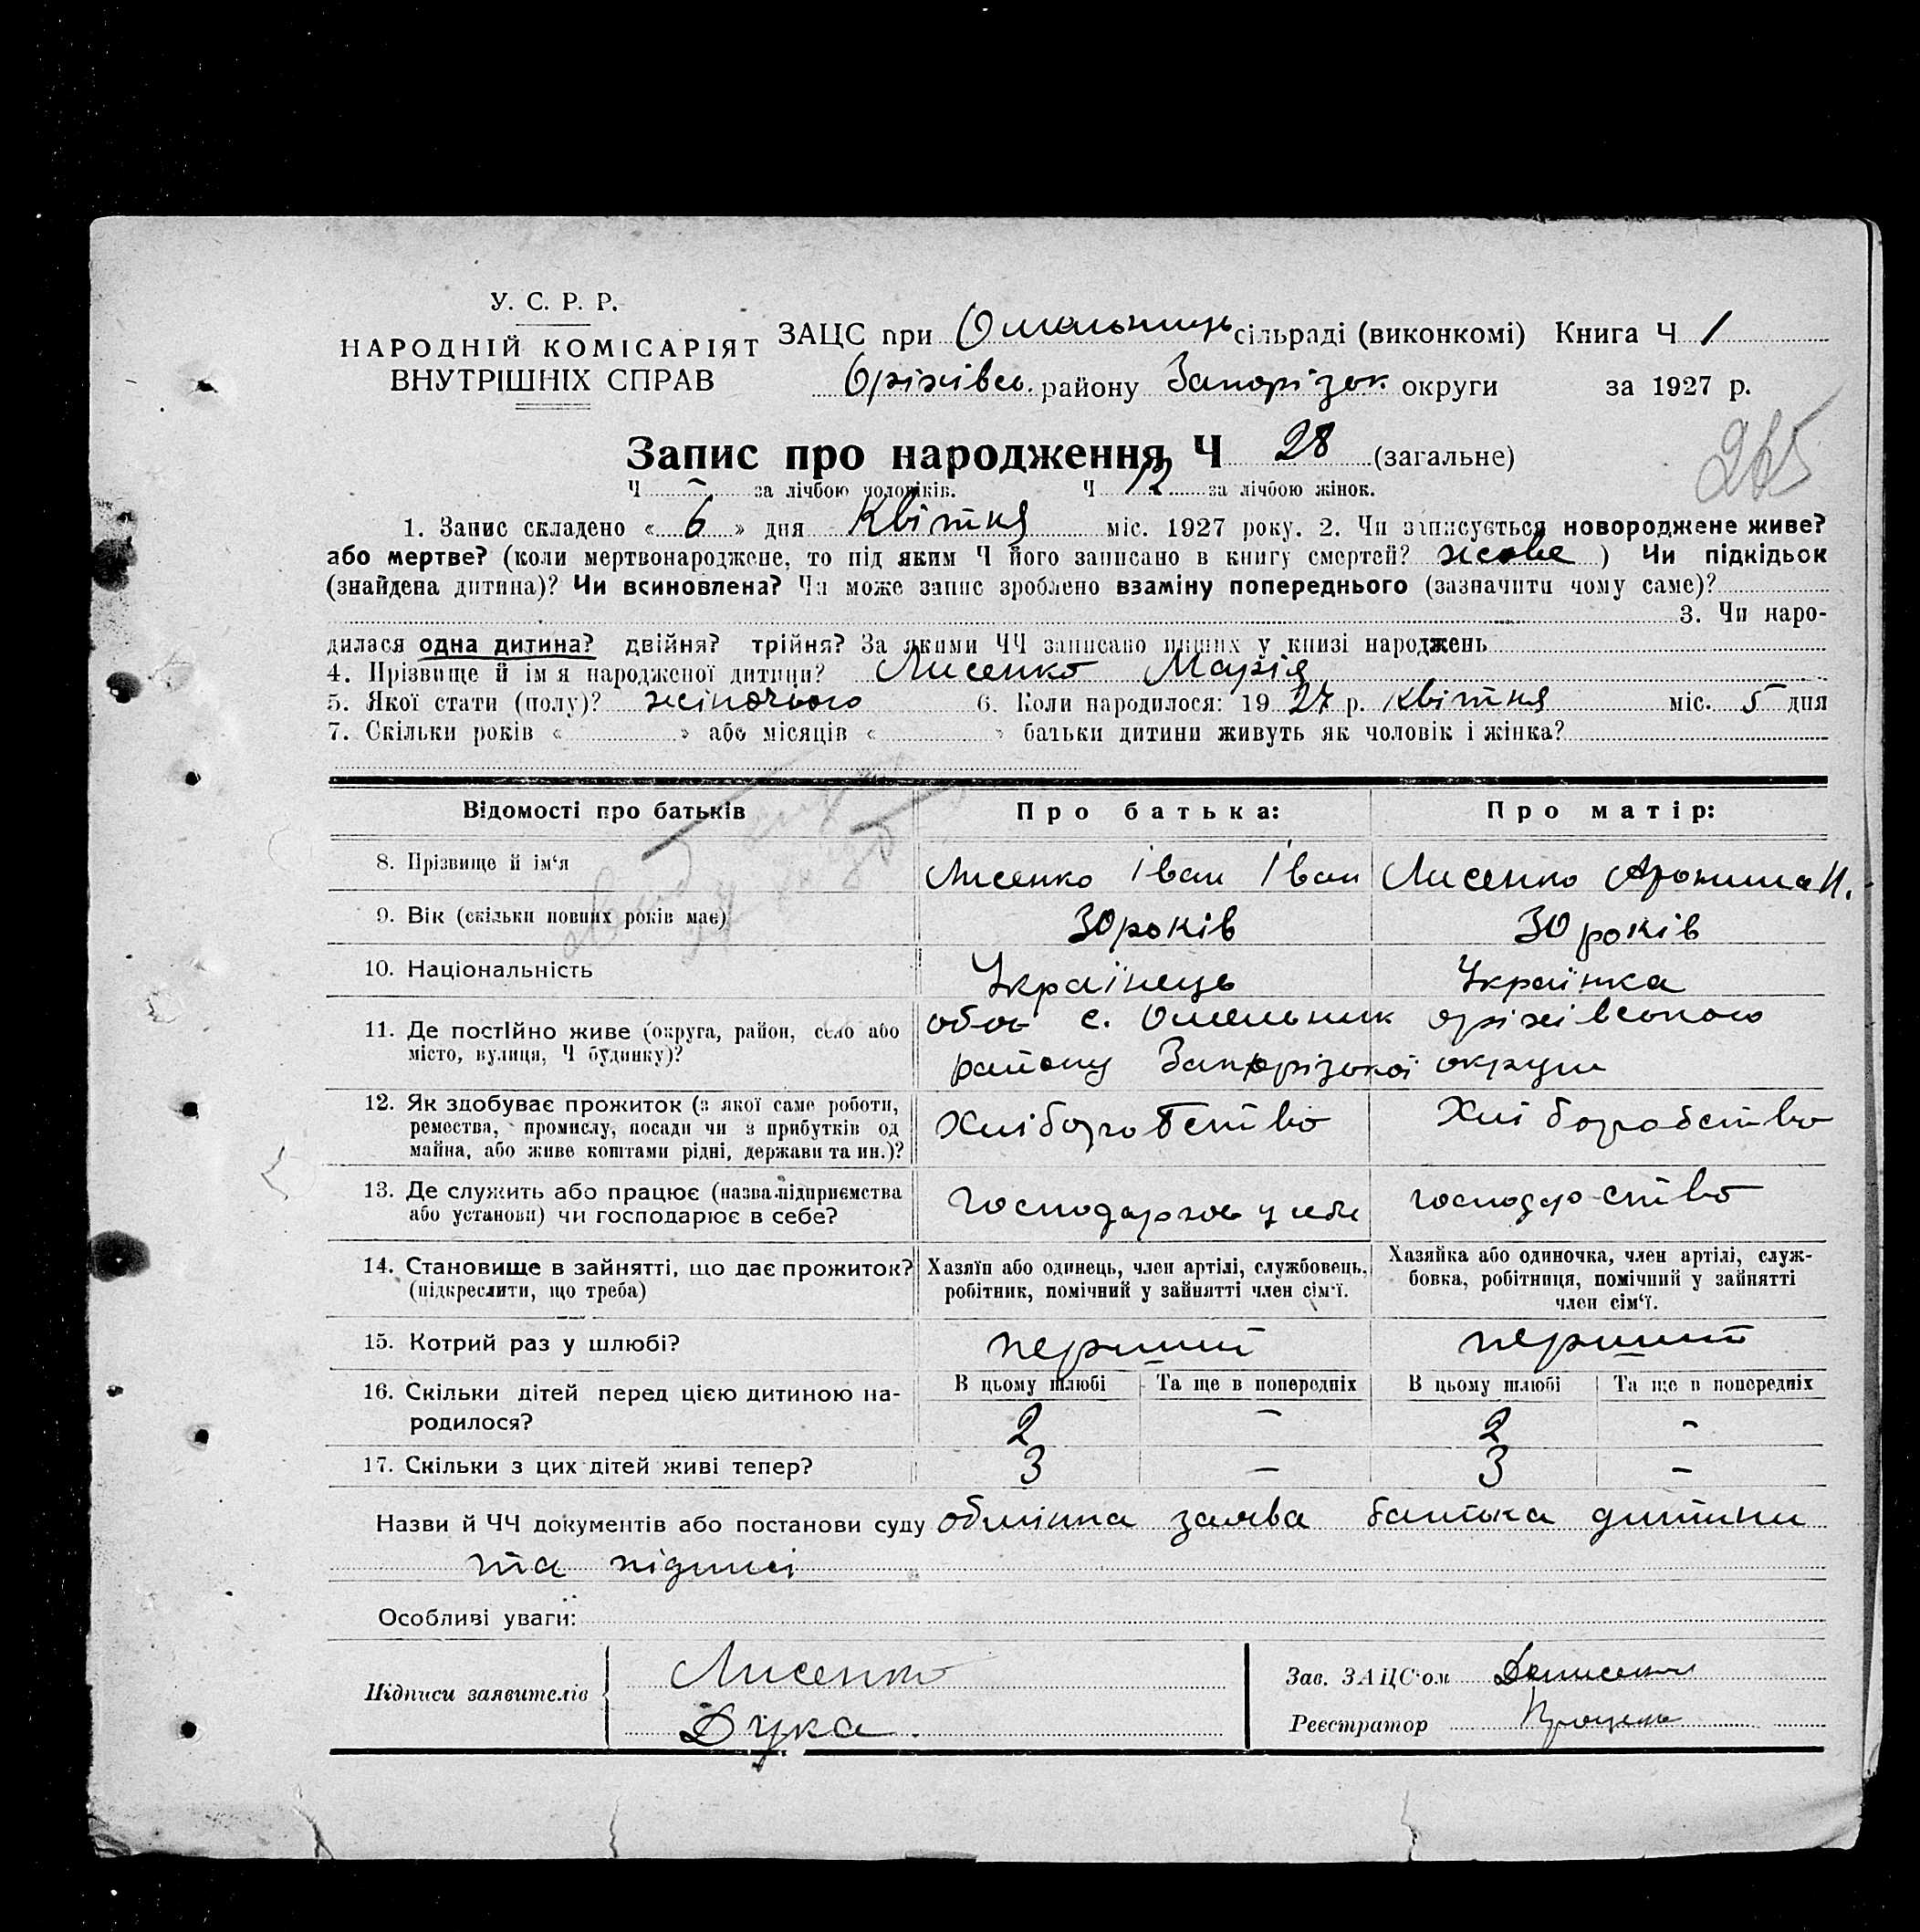 У. С. Р. Р.
НАРОДНІЙ КОМІСАРІЯТ
ВНУТРІШНІХ СПРАВ
ЗАЦС при Омельниць сільраді (виконкомі) Книга Ч 1
Оріхівсь. району Запорізьк округи за 1927 р.
265
Запис про народження Ч 28 (загальне)
Ч – за лічбою чоловіків. Ч 12 за лічбою жінок.
1. Запис складено « 6 » дня Квітня міс. 1927 року. 2. Чи записується новороджене живе?
або мертве? (коли мертвонароджене, то під яким Ч його записано в книгу смертей? живе ) Чи підкідьок
(знайдена дитина)? Чи всиновлена? Чи може запис зроблено взаміну попереднього (зазначити чому саме)?
3. Чи наро-
дилася одна дитина? двійня? трійня? За якими ЧЧ записано инших у книзі народжень
4. Прізвище й ім'я народженої дитини? Лисенко Марія
5. Якої стати (полу)? жіночього 6. Коли народилося: 19 27 р. квітня міс. 5 дня
7. Скільки років « » або місяців « » батьки дитини живуть як чоловік і жінка?
Відомості про батьків Про батька: Про матір:
8. Прізвище й ім'я Лисенко Іван Іван Лисенко И.
9. Вік (скільки повних років має) 30 років 30 років
10. Національність Українець Українка
11. Де постійно живе (округа, район, село або місто, вулиця, Ч будинку)? обоє с. Омельник оріхівського
району Запорізької округи
12. Як здобуває прожиток (з якої саме роботи, ремества, промислу, посади чи з прибутків од майна, або живе коштами рідні, держави та ин.)? Хліборобство Хліборобство
13. Де служить або працює (назва підприємства або установи) чи господарює в себе? господарює у себе господарство
14. Становище в зайнятті, що дає прожиток? (підкреслити, що треба) Хазяїн або одинець, член артілі, службовець, робітник, помічний у зайнятті член сім'ї. Хазяйка або одиночка, член артілі, служ-
бовка, робітниця, помічний у зайнятті
член сім'ї.
15. Котрий раз у шлюбі? перший перший
16. Скільки дітей перед цією дитиною на-
родилося? В цьому шлюбі Та ще в попередніх В цьому шлюбі Та ще в попередніх
2 – 2 –
17. Скільки з цих дітей живі тепер? 3 – 3 –
Назви й ЧЧ документів або постанови суду обмінна заява батька дитини
та підписі
Особливі уваги:
Підписи заявителів Лисенко
Дука
Зав. ЗАЦС'ом Денисенко
Реєстратор